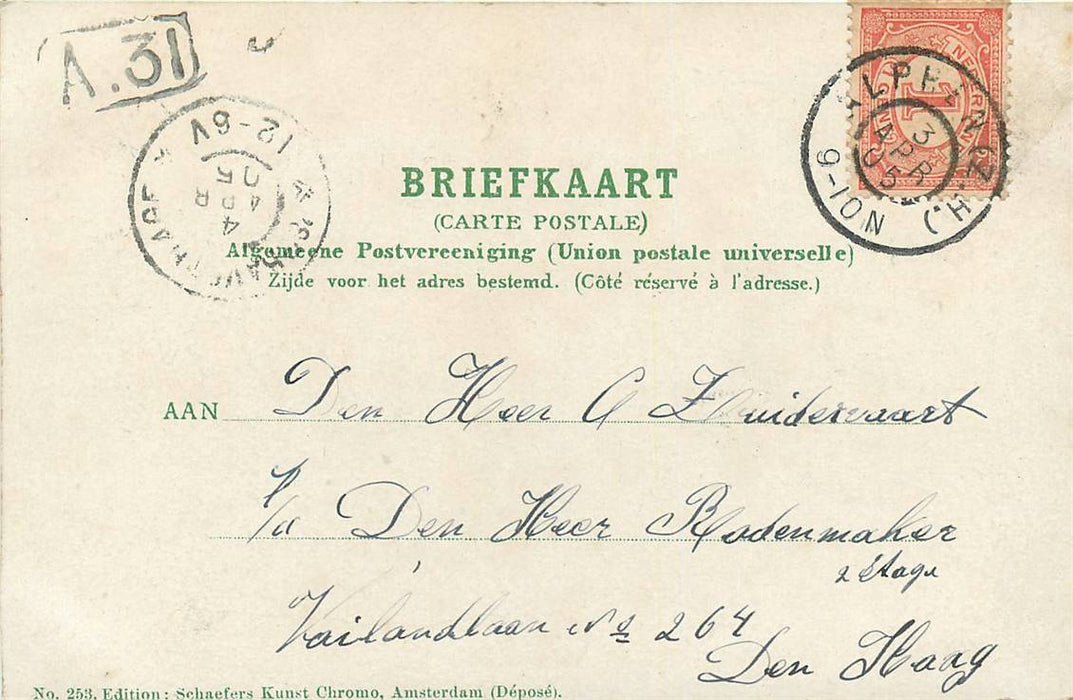 A.31
12-6V
4 APR 05
'S GRAVENHAGE
NEDERLAND
1 CENT
ALPHEN (Z.H.)
3 APR 05
9-10N
BRIEFKAART
(CARTE POSTALE)
Algemeene Postvereeniging (Union postale universelle)
Zijde voor het adres bestemd. (Côté réservé à l'adresse.)
AAN Den Heer A Zuidervaart
p/a Den Heer Rodenmaker
2 étage
Vailandlaan No 264
Den Haag
No. 253. Edition: Schaefers Kunst Chromo, Amsterdam (Déposé).